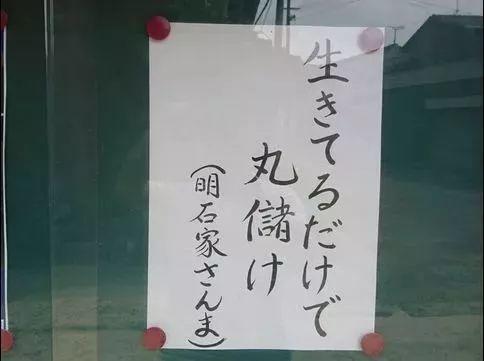 生きてるだけで
丸儲け
（明石家さんま）